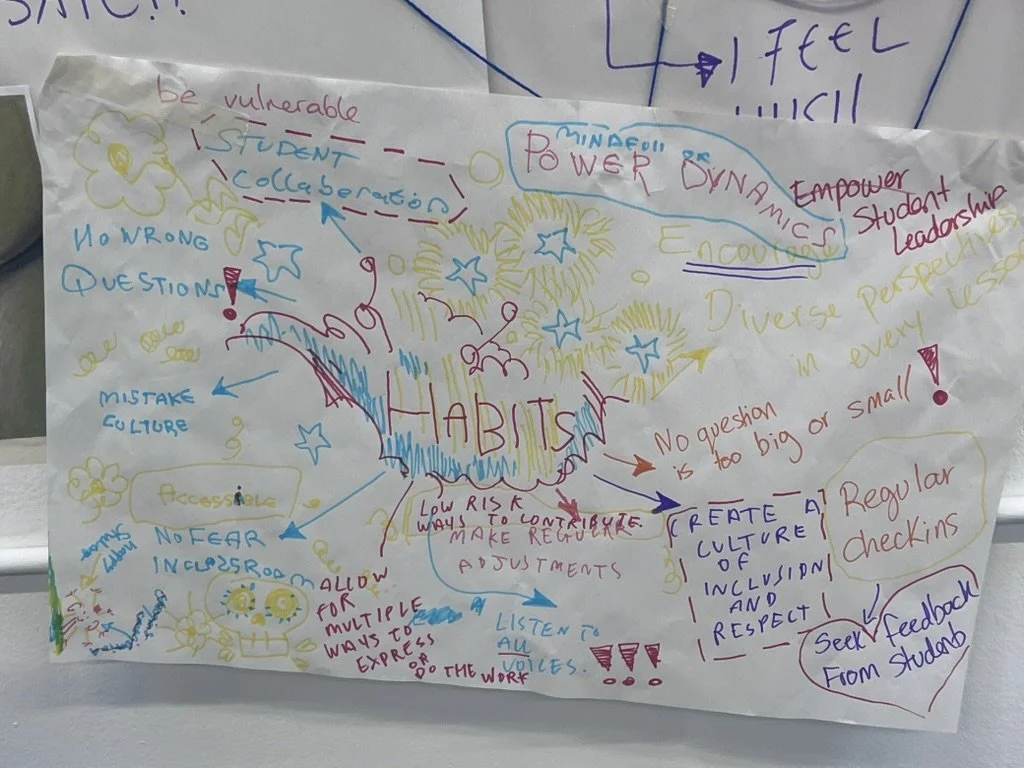 I FEEL
be vulnerable
STUDENT
collaberation
MINDFUll OF
POWER DYNAMICS
EMPOWER
Student
Leadership
Encourage
Diverse perspectives
in every lesson
NO WRONG
QUESTIONS!
MISTAKE
CULTURE
HABITS
No question
is too big or small!
Accessible
NO FEAR
IN CLASSROOM
LOW RISK
WAYS TO CONTRIBUTE
MAKE REGULAR
ADJUSTMENTS
CREATE A
CULTURE
OF
INCLUSION
AND
RESPECT
Regular
checkins
ALLOW
FOR
MULTIPLE
WAYS TO
EXPRESS
OR
DO THE WORK
LISTEN TO
ALL
VOICES. !!!
Seek feedback
From Students